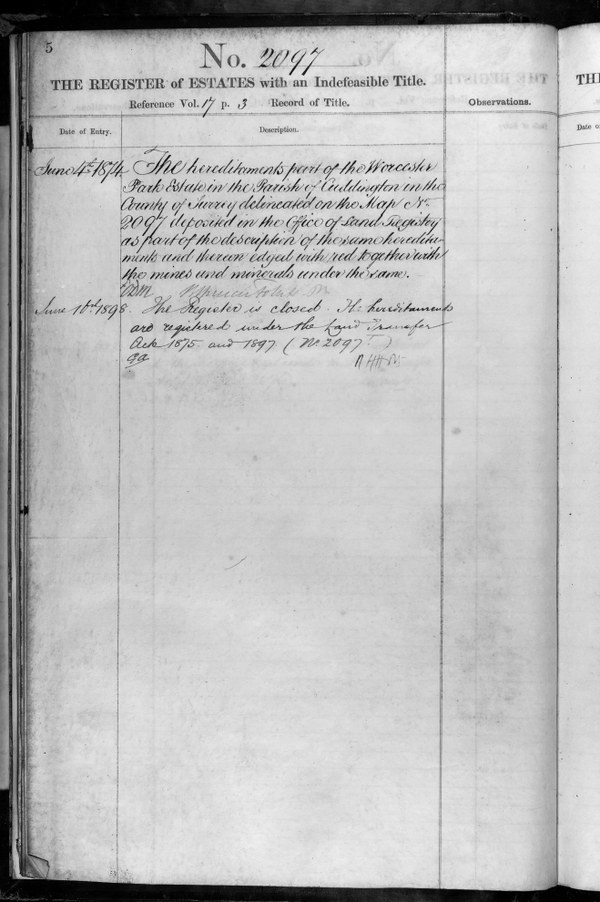 5
No. 2097
THE REGISTER of ESTATES with an Indefeasible Title.
Reference Vol. 17 p. 3 Record of Title.
Observations.
Date of Entry.
Description.
June 4th 1874
The hereditaments part of the Worcester
Park Estate in the Parish of Cuddington in the
County of Surrey delineated on the Map No
2097 deposited in the Office of Land Registry
as part of the description of the same heredita-
ments and thereon edged with red together with
the mines and minerals under the same.
June 10th 1898. The Register is closed. The hereditaments
are registered under the Land Transfer
Acts 1875 and 1897 (No 2097)
TH
Date o